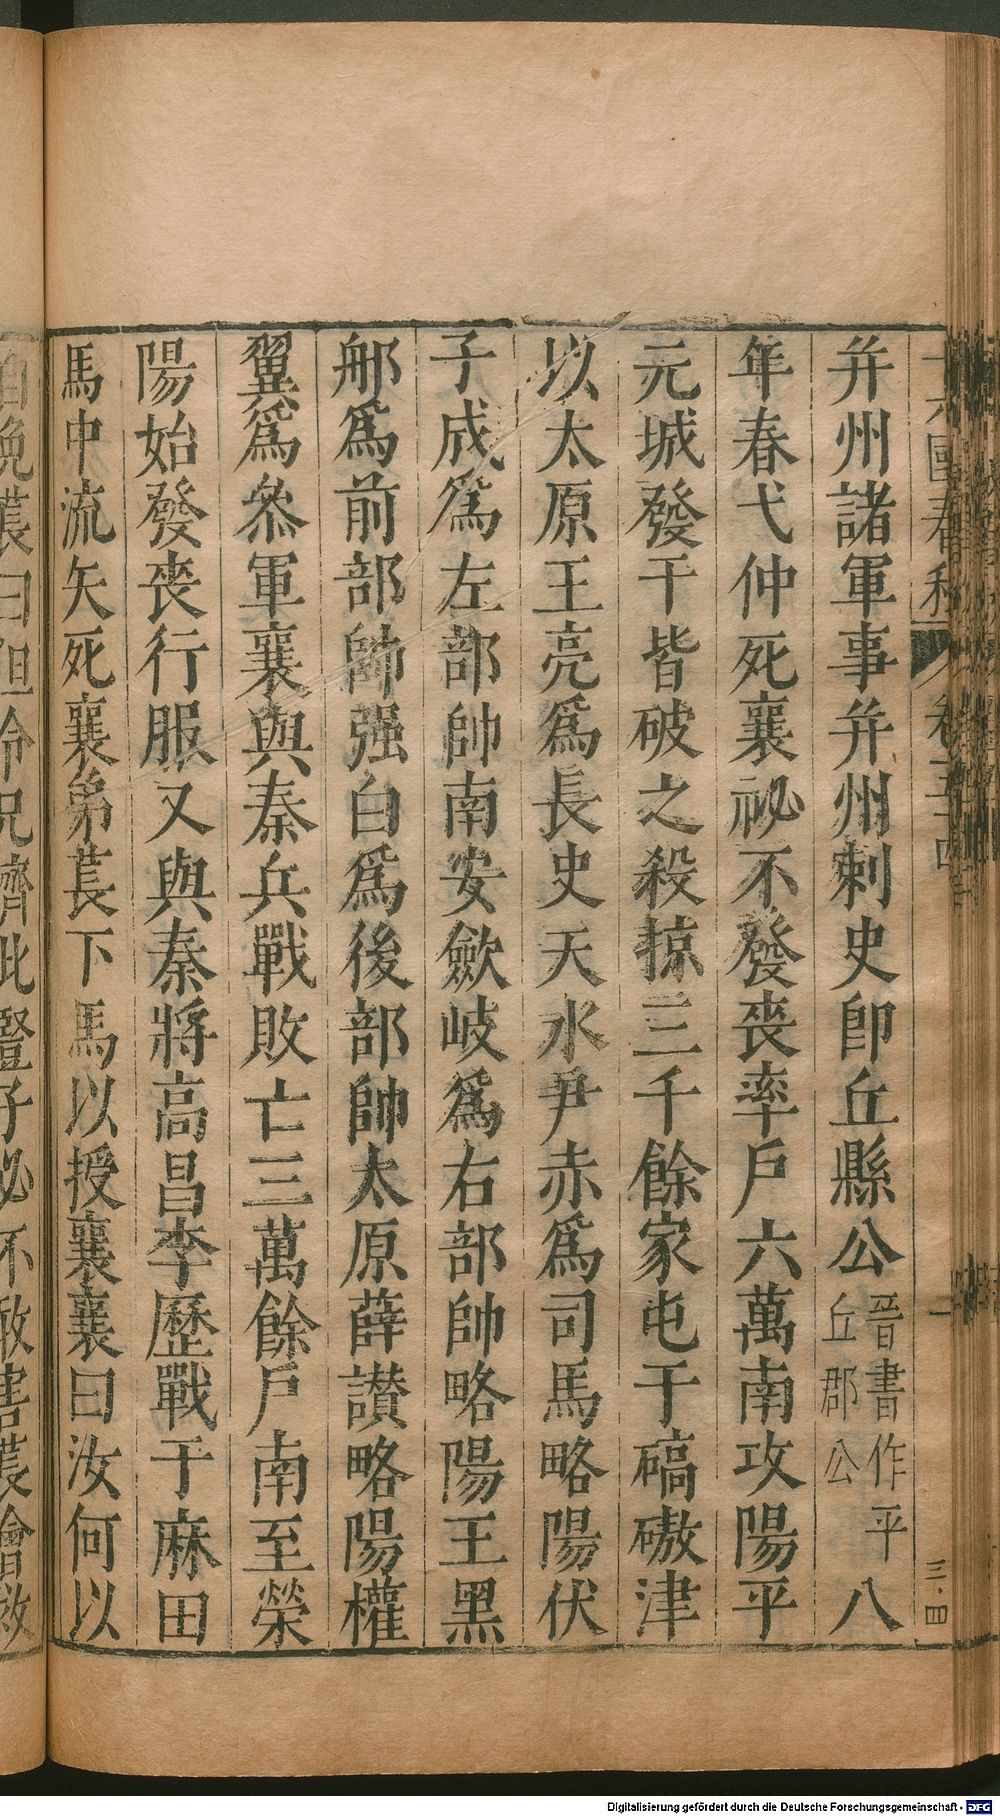 十六國春秋 卷五十四 一 三·四
幷州諸軍事幷州刺史卽丘縣公晉書作平丘郡公八
年春弋仲死襄祕不發喪率戶六萬南攻陽平
元城發干皆破之殺掠三千餘家屯于碻磝津
以太原王亮爲長史天水尹赤爲司馬略陽伏
子成爲左部帥南安斂岐爲右部帥略陽王黑
那爲前部帥强白爲後部帥太原薛讃略陽權
翼爲叅軍襄與秦兵戰敗亡三萬餘戶南至榮
陽始發喪行服又與秦將高昌李歷戰于麻田
馬中流矢死襄弟萇下馬以授襄襄曰汝何以
自免萇曰但令兄濟此豎子必不敢害萇會救
Digitalisierung gefördert durch die Deutsche Forschungsgemeinschaft - DFG